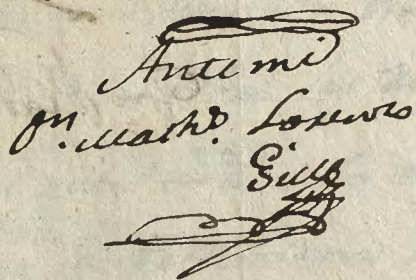 Ante mi
Jn. Math.º Lorenzo
Gill